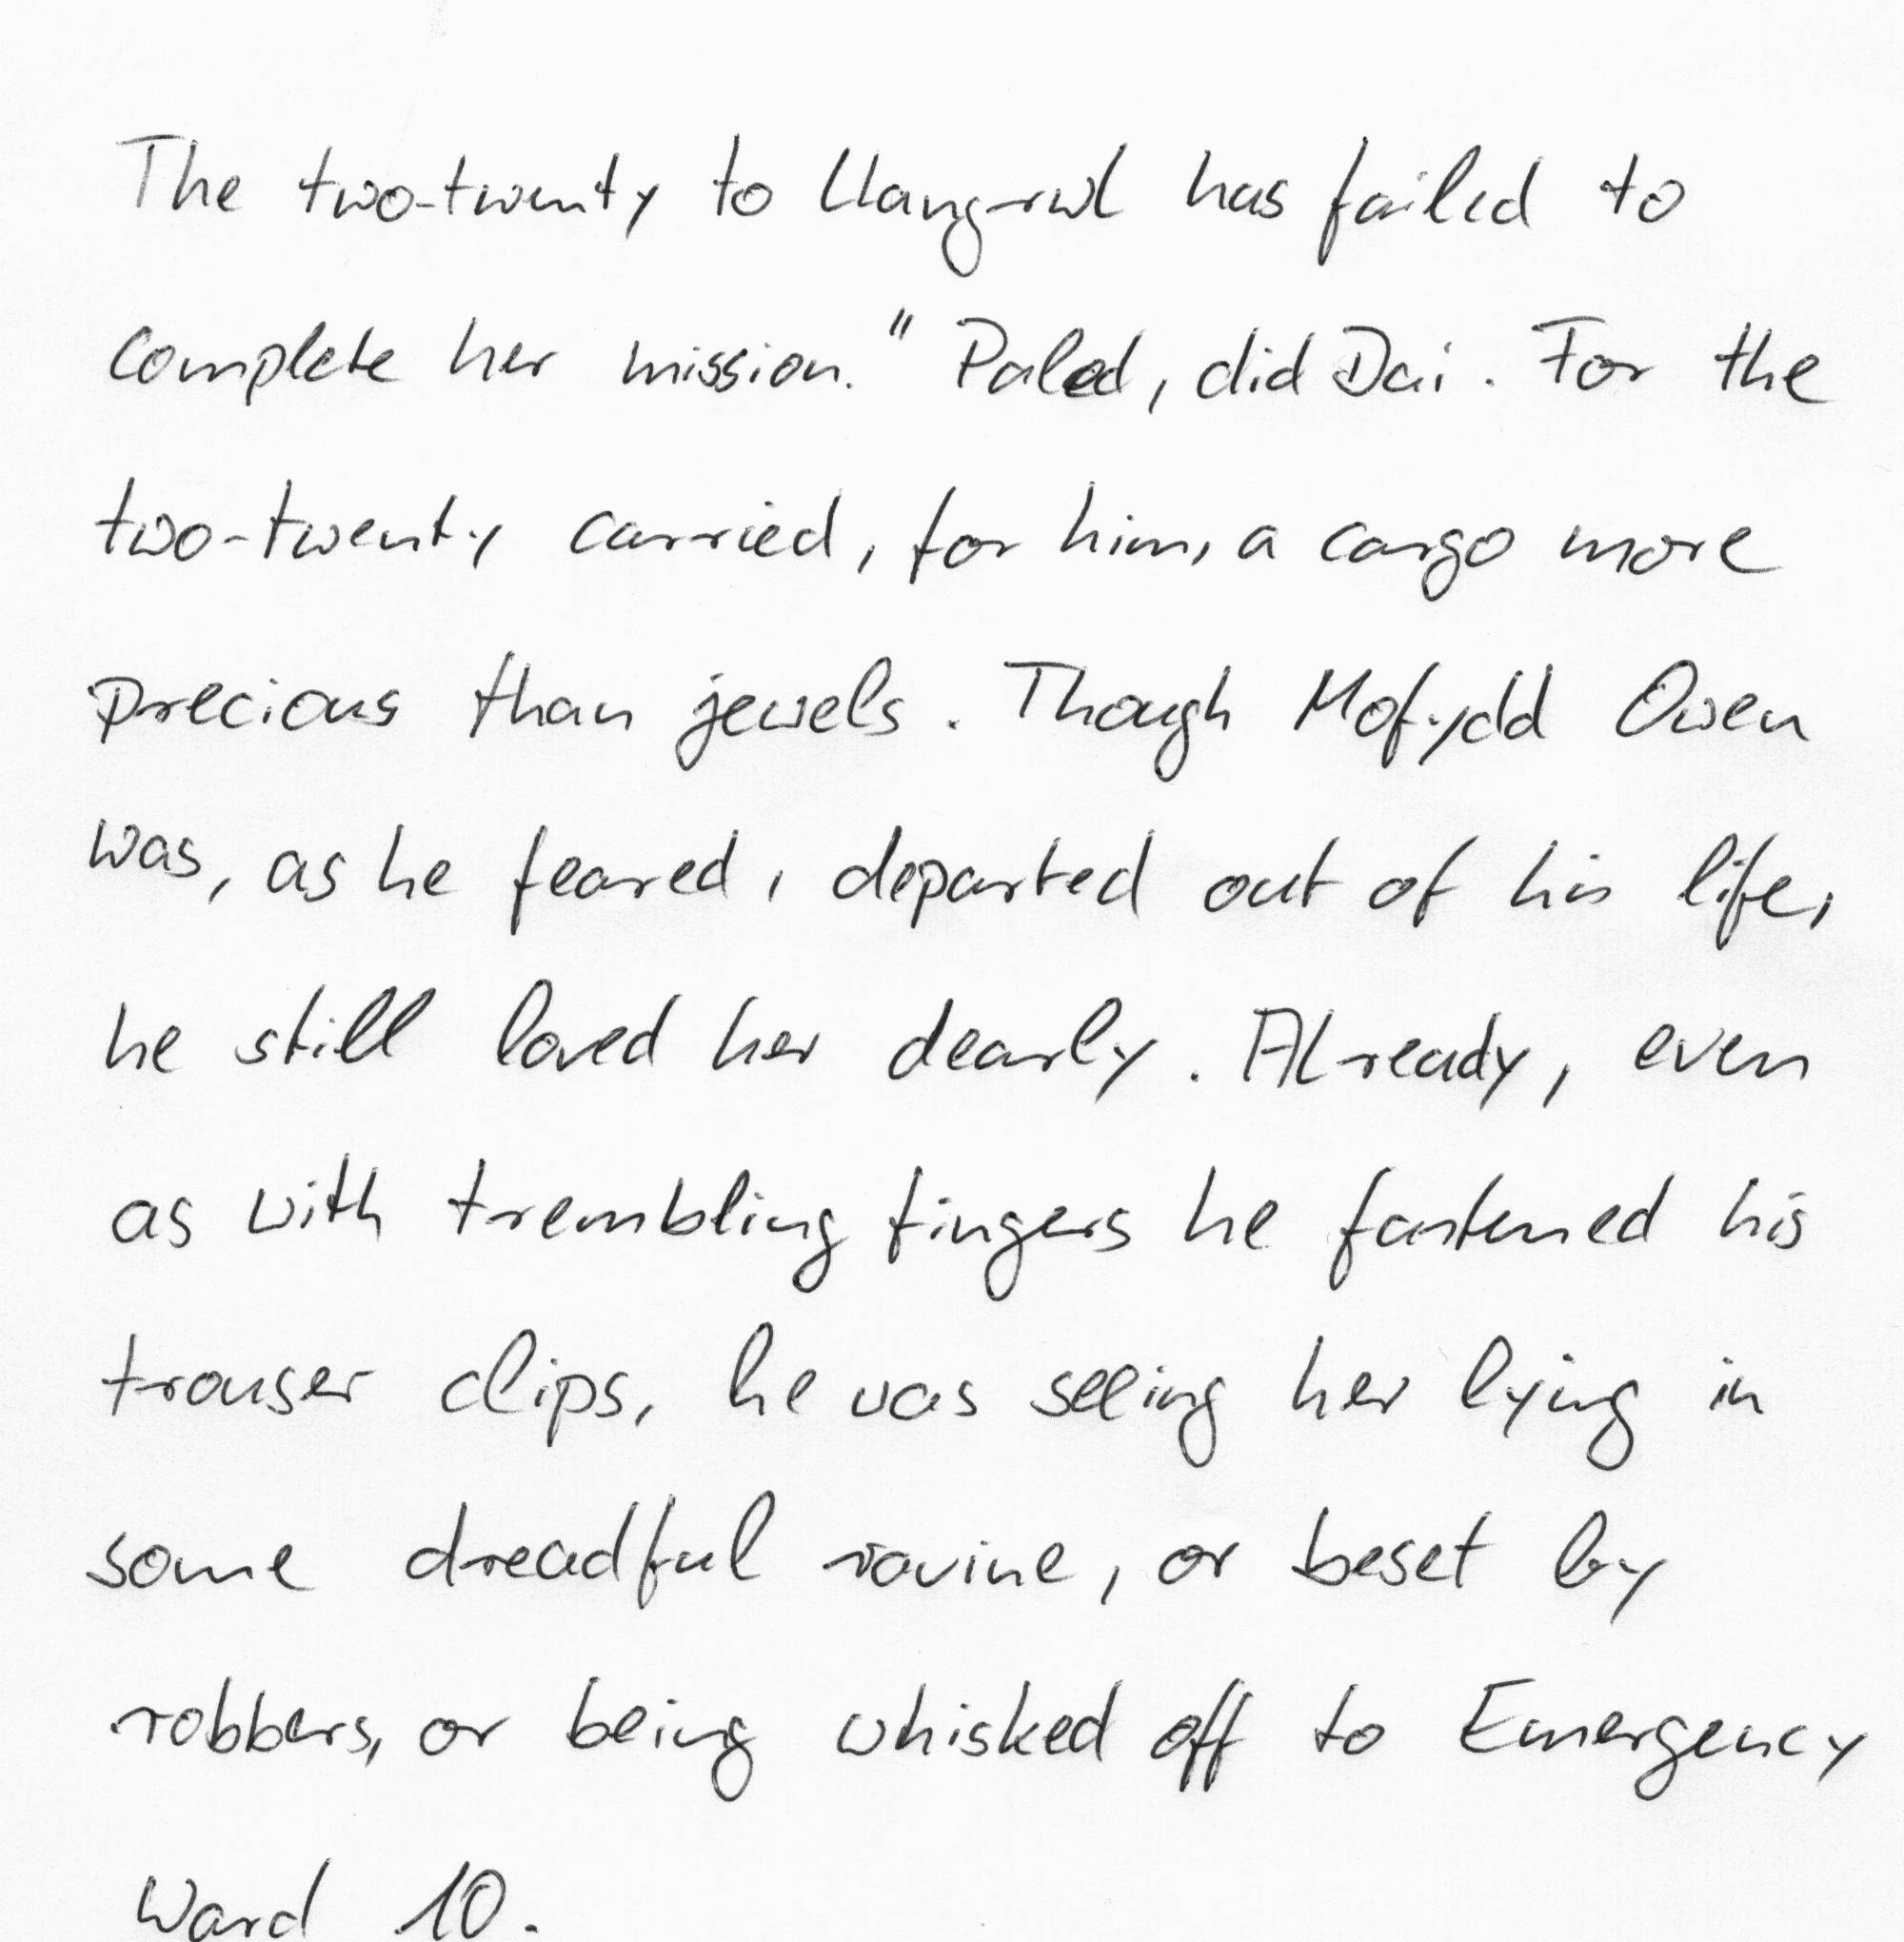 The two-twenty to Llangrwl has failed to
complete her mission." Paled, did Dai. For the
two-twenty carried, for him, a cargo more
precious than jewels. Though Mofydd Owen
was, as he feared, departed out of his life,
he still loved her dearly. Already, even
as with trembling fingers he fastened his
trouser clips, he was seeing her lying in
some dreadful ravine, or beset by
robbers, or being whisked off to Emergency
Ward 10.